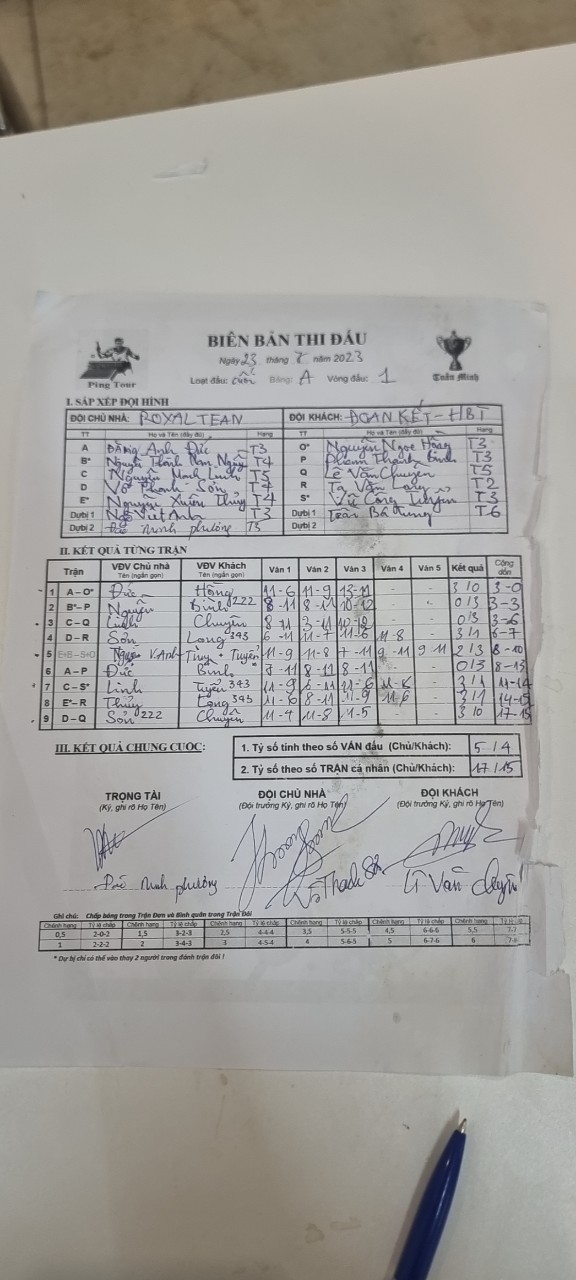 Ping Tour
BIÊN BẢN THI ĐẤU
Tuấn Minh
Ngày 23 tháng 7 năm 2023
Loạt đấu: cuối Bảng: A Vòng đấu: 1
I. SẮP XẾP ĐỘI HÌNH
ĐỘI CHỦ NHÀ: ROYAL TEAN ĐỘI KHÁCH: ĐOAN KẾT - HBT
TT Họ và Tên (đầy đủ) Hạng TT Họ và Tên (đầy đủ) Hạng
A Đặng Anh Đức T3 O* Nguyễn Ngọc Hồng T3
B* Nguyễn T4 P Phạm Thanh Bình T3
C Nguyễn Linh T5 Q Lê Văn Chuyền T5
D Võ Thanh Sơn T4 R Tạ Văn Long T2
E* Nguyễn Xuân Thủy T4 S* Vũ Công Tuyển T3
Dự bị 1 Ngô Việt Anh T3 Dự bị 1 Trần Bá Tung T6
Dự bị 2 Đỗ Minh phương T5 Dự bị 2
II. KẾT QUẢ TỪNG TRẬN
Trận VĐV Chủ nhà Tên (ngắn gọn) VĐV Khách Tên (ngắn gọn) Ván 1 Ván 2 Ván 3 Ván 4 Ván 5 Kết quả Cộng dồn
1 A – O* Đức Hồng 11-6 11-9 13-11 - - 3/0 3-0
2 B* – P Nguyễn Bình 222 8-11 8-11 10-12 - - 0/3 3-3
3 C – Q Linh Chuyền 8-11 3-11 10-12 - - 0/3 3-6
4 D – R Sơn Long 343 6-11 11-7 11-6 11-8 - 3/1 6-7
5 V.Anh Tùng + Tuyển 11-9 11-8 7-11 9-11 9 11 2/3 8-10
6 A – P Đức Bình 7-11 8-11 8-11 - - 0/3 8-13
7 C – S* Linh Tuyển 343 11-9 3/1 11-14
8 E* – R Thủy Long 343 11-6 8-11 11-9 11-6 - 3/1 14-15
9 D – Q Sơn 222 Chuyền 11-4 11-8 11-5 - - 3/0 17-15
III. KẾT QUẢ CHUNG CUỘC:
1. Tỷ số tính theo số VÁN đấu (Chủ/Khách): 5/4
2. Tỷ số theo số TRẬN cá nhân (Chủ/Khách): 17/15
TRỌNG TÀI ĐỘI CHỦ NHÀ ĐỘI KHÁCH
(Ký, ghi rõ Họ Tên) (Đội trưởng Ký, ghi rõ Họ Tên) (Đội trưởng Ký, ghi rõ Họ Tên)
Đỗ Minh phương Võ Thanh Sơn Lê Văn Chuyền
Ghi chú: Chấp bóng trong Trận Đơn và Bình quân trong Trận Đôi
Chênh hạng Tỷ lệ chấp Chênh hạng Tỷ lệ chấp Chênh hạng Tỷ lệ chấp Chênh hạng Tỷ lệ chấp Chênh hạng Tỷ lệ chấp Chênh hạng
0,5 2-0-2 1,5 3-2-3 2,5 4-4-4 3,5 5-5-5 4,5 6-6-6 5,5
1 2-2-2 2 3-4-3 3 4-5-4 4 5-6-5 5 6-7-6 6
* Dự bị chỉ có thể vào thay 2 người trong đánh trận đôi !